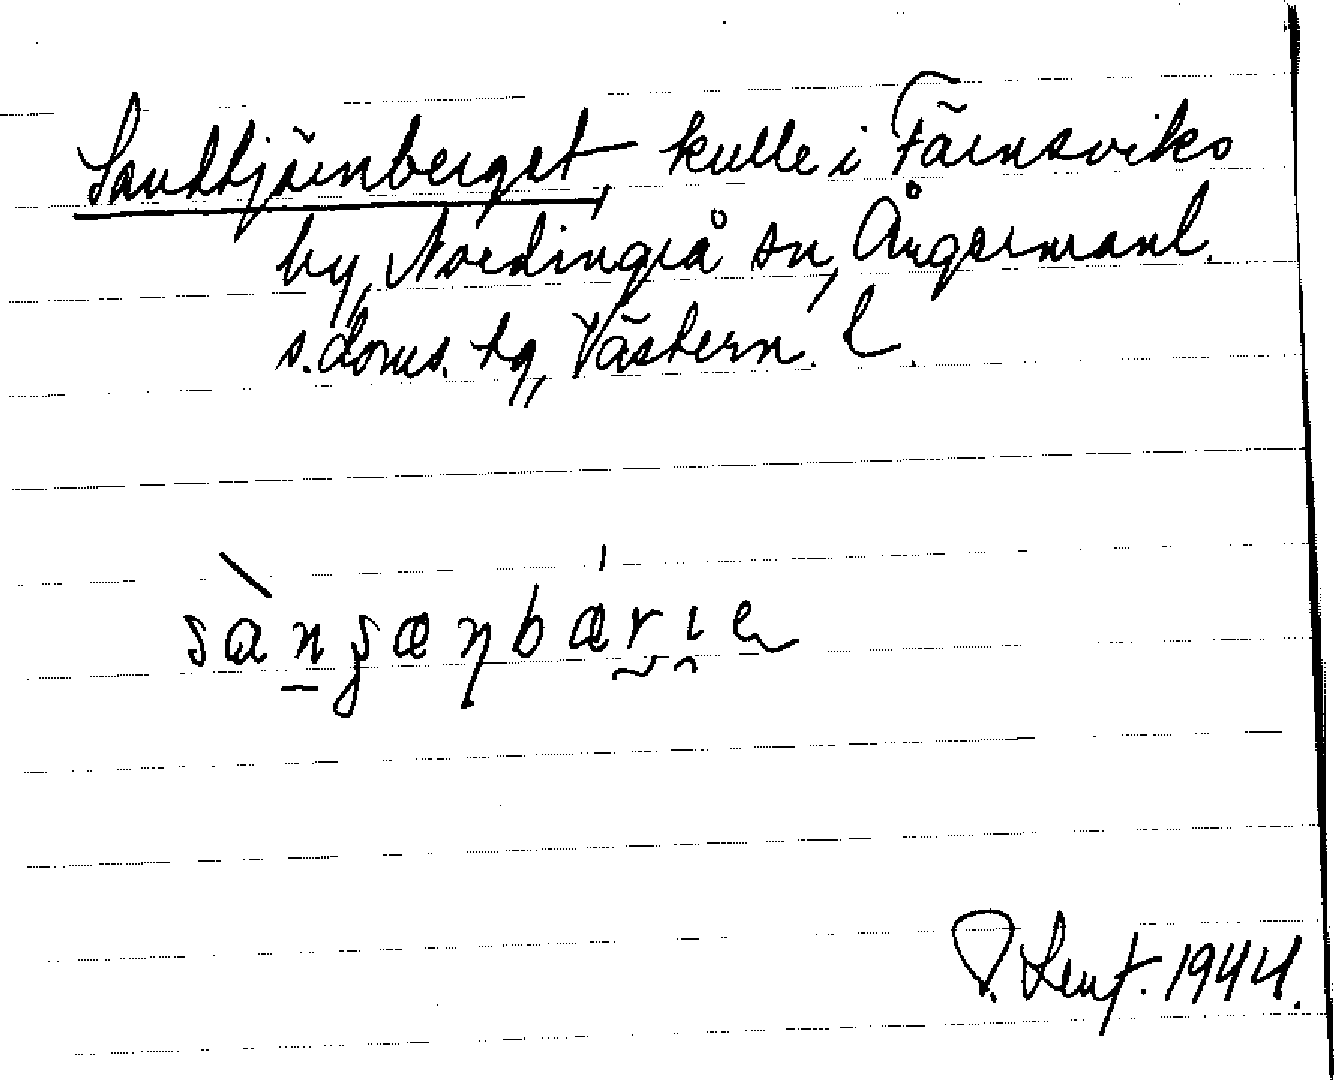 Sandtjärnberget, kulle i Färnsviks
by, Nordingrå sn, Ångermanl.
s. doms. tg, Västern. L.
P. Lenf. 1944.